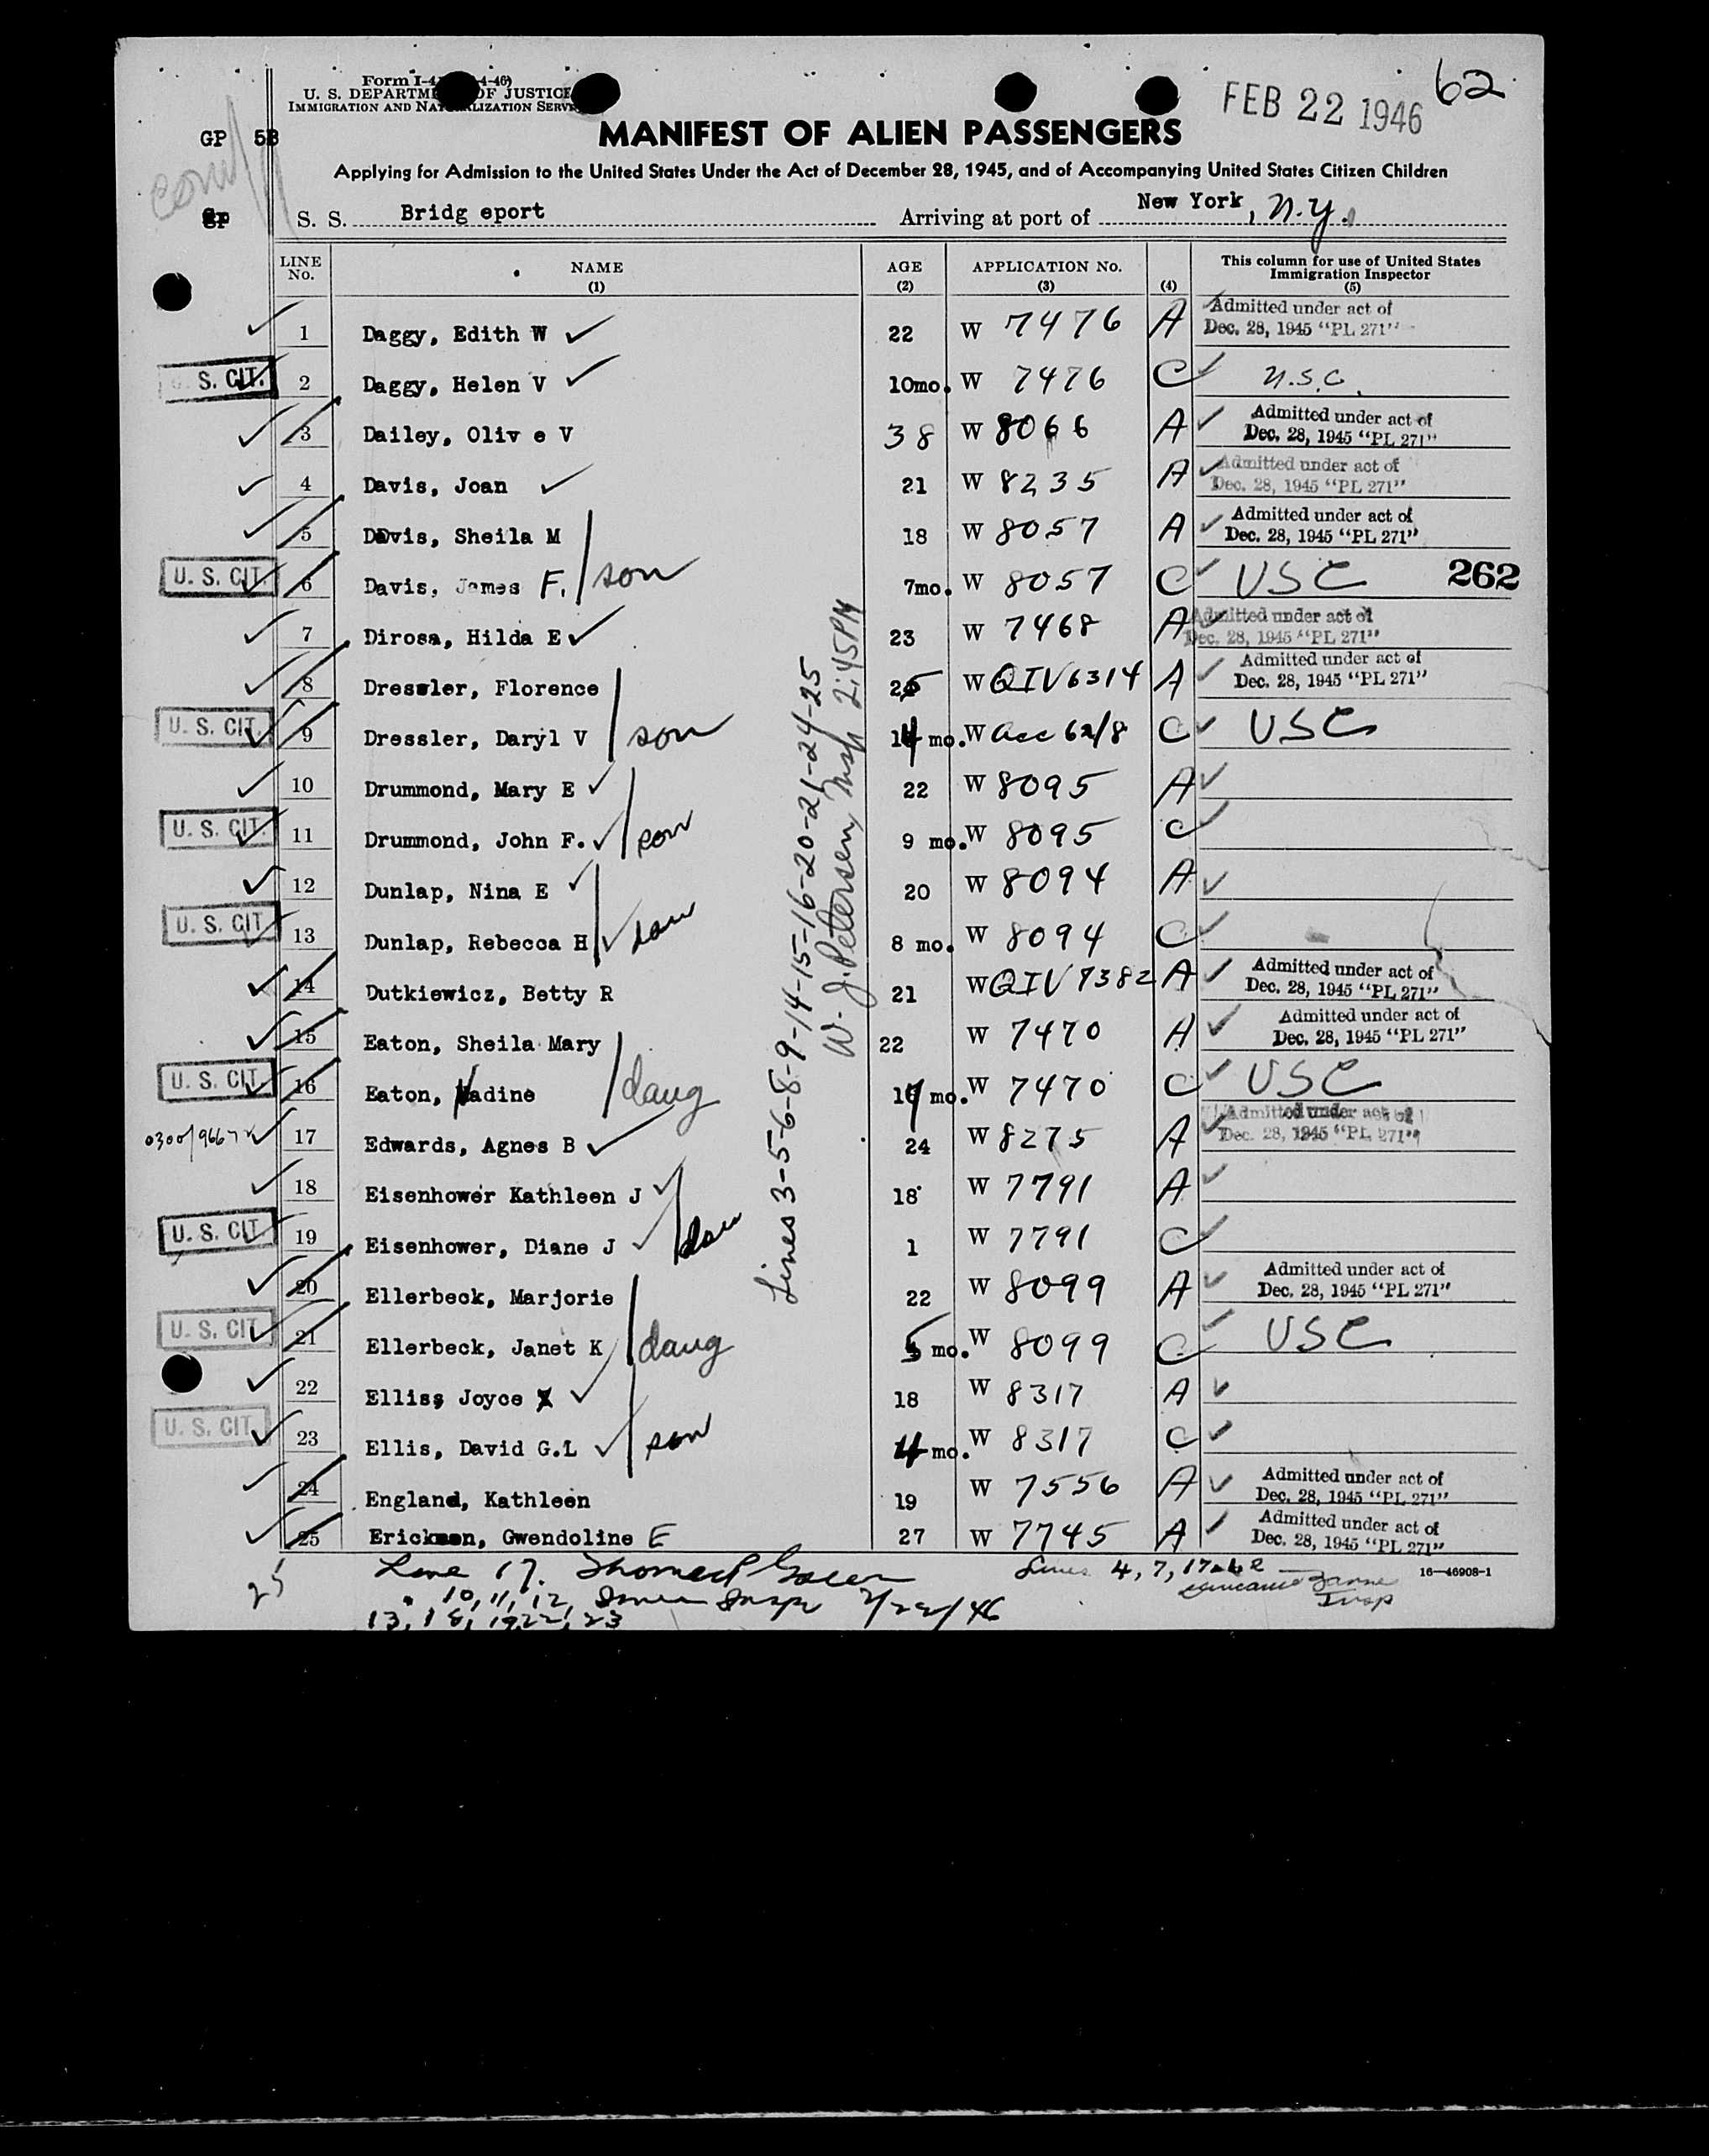 Form I-4 4-46)
U. S. DEPARTM OF JUSTICE
IMMIGRATION AND NATURALIZATION SERV
FEB 22 1946
62
GP 5B
MANIFEST OF ALIEN PASSENGERS
Applying for Admission to the United States Under the Act of December 28, 1945, and of Accompanying United States Citizen Children
Gp
S. S. Bridg eport Arriving at port of New York, N.Y.
LINE No. NAME (1) AGE (2) APPLICATION No. (3) (4) This column for use of United States Immigration Inspector (5)
1 Daggy, Edith W 22 W 7476 A Admitted under act of Dec. 28, 1945 "PL 271"
U. S. CIT. 2 Daggy, Helen V 10mo. W 7476 C U.S.C.
3 Dailey, Oliv e V 38 W 8066 A Admitted under act of Dec. 28, 1945 "PL 271"
4 Davis, Joan 21 W 8235 A Admitted under act of Dec. 28, 1945 "PL 271"
5 Davis, Sheila M 18 W 8057 A Admitted under act of Dec. 28, 1945 "PL 271"
U. S. CIT. 6 Davis, James F. son 7mo. W 8057 C USC 262
7 Dirosa, Hilda E 23 W 7468 A Admitted under act of Dec. 28, 1945 "PL 271"
8 Dressler, Florence 25 W QIV6314 A Admitted under act of Dec. 28, 1945 "PL 271"
U. S. CIT. 9 Dressler, Daryl V son 14 mo. W acc 62/8 C USC
10 Drummond, Mary E 22 W 8095 A
U. S. CIT. 11 Drummond, John F. son 9 mo. W 8095 C
12 Dunlap, Nina E 20 W 8094 A
U. S. CIT. 13 Dunlap, Rebecca H dau 8 mo. W 8094 C
14 Dutkiewicz, Betty R 21 W QIV 7382 A Admitted under act of Dec. 28, 1945 "PL 271"
15 Eaton, Sheila Mary 22 W 7470 A Admitted under act of Dec. 28, 1945 "PL 271"
U. S. CIT. 16 Eaton, Nadine daug mo. W 7470 C USC
0300/96672 17 Edwards, Agnes B 24 W 8275 A Admitted under act of Dec. 28, 1945 "PL 271"
18 Eisenhower Kathleen J 18 W 7791 A
U. S. CIT. 19 Eisenhower, Diane J dau 1 W 7791 C
20 Ellerbeck, Marjorie 22 W 8099 A Admitted under act of Dec. 28, 1945 "PL 271"
U. S. CIT. 21 Ellerbeck, Janet K daug 5 mo. W 8099 C USC
22 Ellis, Joyce 18 W 8317 A
U. S. CIT. 23 Ellis, David G.L son 4 mo. W 8317 C
24 England, Kathleen 19 W 7556 A Admitted under act of Dec. 28, 1945 "PL 271"
25 Erickson, Gwendoline E 27 W 7745 A Admitted under act of Dec. 28, 1945 "PL 271"
Lines 3-5-6-8-9-14-15-16-20-21-24-25
W. J. Petersen, Insp 2:45PM
25
Line 17.
Lines 4, 7, 17
16—46908-1
" 10, 11, 12, Insp 2/22/46
Insp
13, 18, 19, 22, 23